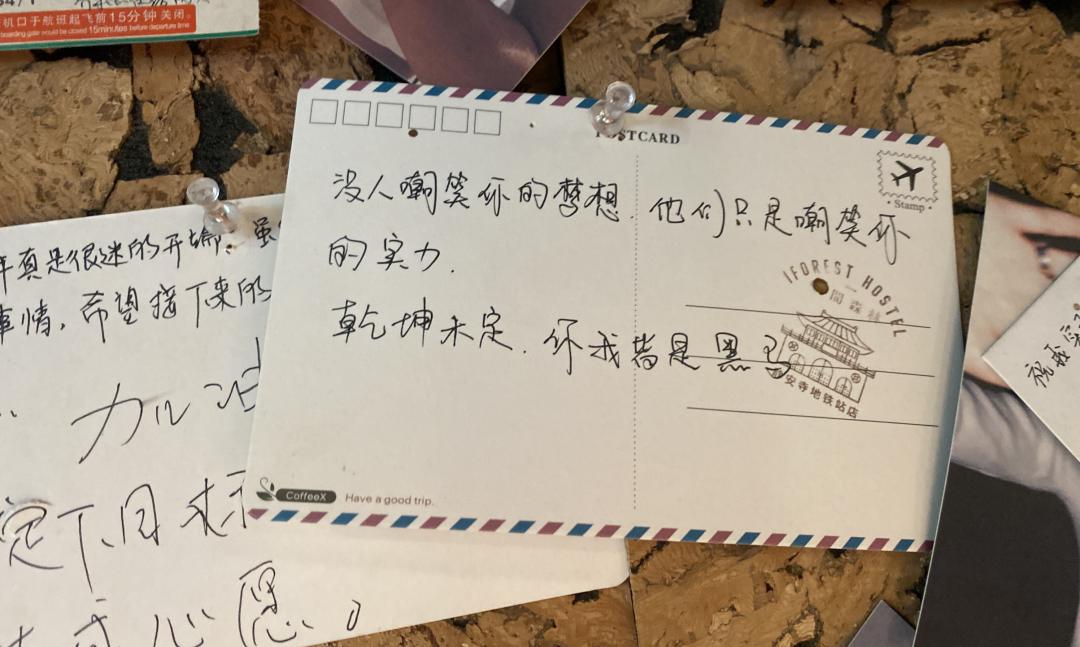 机口于航班起飞前15分钟 关闭。
boarding gate would be closed 15minutes before departure time
POSTCARD
Stamp
没人嘲笑你的梦想. 他们只是嘲笑你
的实力.
乾坤未定. 你我皆是黑马
IFOREST HOSTEL
間森林
安寺地铁站店
CoffeeX Have a good trip.
年真是很迷的开端. 虽
事情, 希望接下来的
加油
定下目标
心愿。
祝我